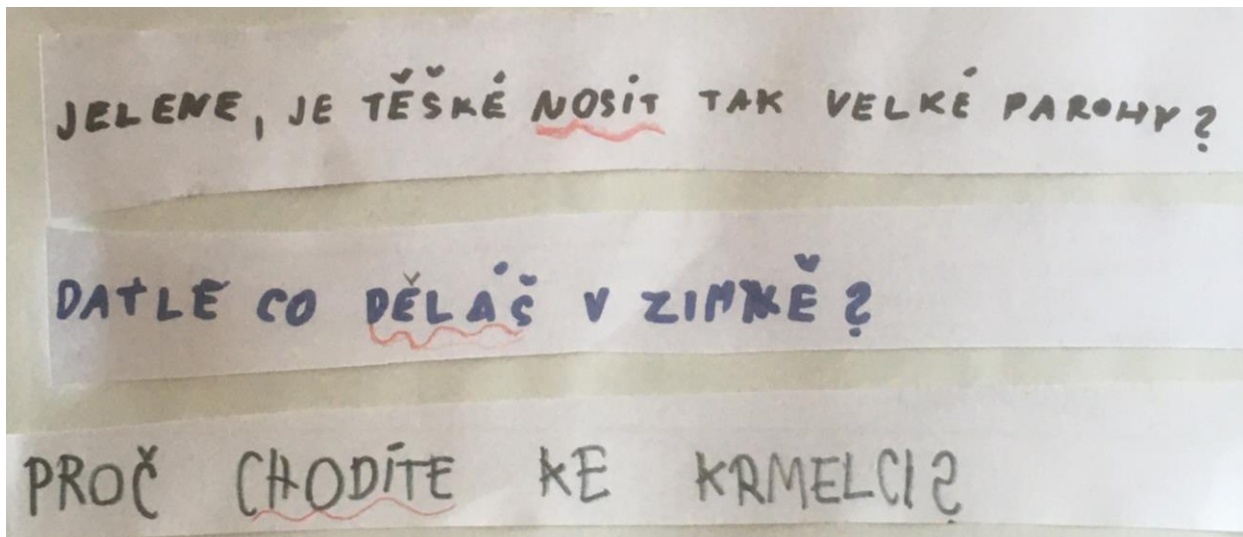 JELENE, JE TĚŠKÉ NOSIT TAK VELKÉ PAROHY?
DATLE CO DĚLÁŠ V ZIMNĚ?
PROČ CHODÍTE KE KRMELCI?